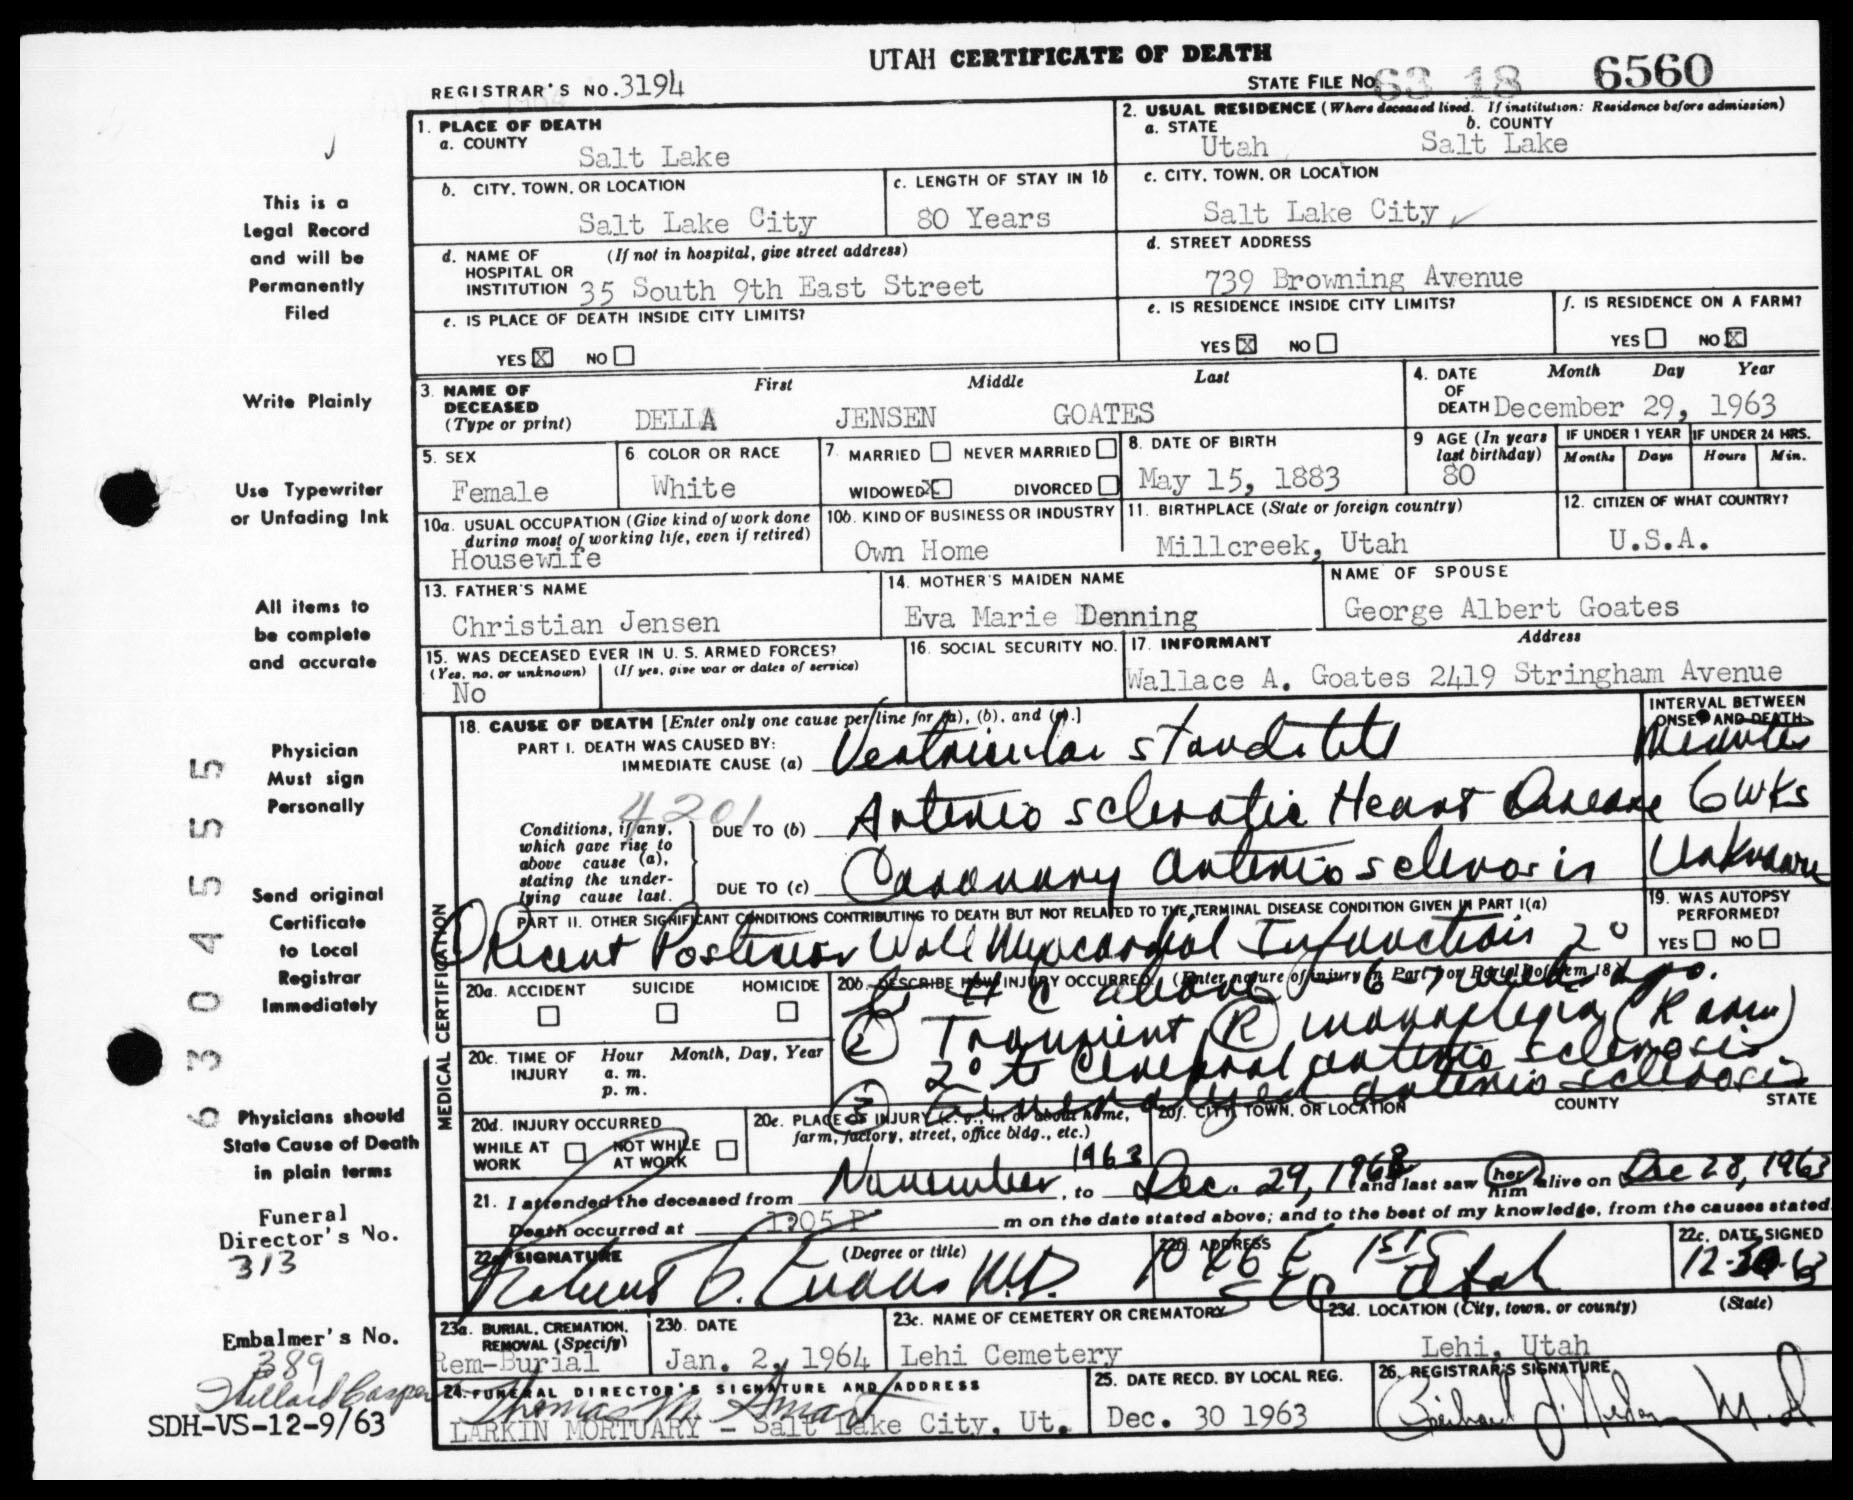 UTAH CERTIFICATE OF DEATH
REGISTRAR'S NO. 3194
STATE FILE NO. 63 18 6560
1. PLACE OF DEATH
a. COUNTY
Salt Lake
2. USUAL RESIDENCE (Where deceased lived. If institution: Residence before admission)
a. STATE b. COUNTY
Utah Salt Lake
b. CITY, TOWN, OR LOCATION
Salt Lake City
c. LENGTH OF STAY IN 1b
80 Years
c. CITY, TOWN, OR LOCATION
Salt Lake City
d. NAME OF HOSPITAL OR INSTITUTION (If not in hospital, give street address)
35 South 9th East Street
d. STREET ADDRESS
739 Browning Avenue
e. IS PLACE OF DEATH INSIDE CITY LIMITS?
YES X NO
e. IS RESIDENCE INSIDE CITY LIMITS?
YES X NO
f. IS RESIDENCE ON A FARM?
YES NO X
3. NAME OF DECEASED (Type or print)
First Middle Last
DELLA JENSEN GOATES
4. DATE OF DEATH Month Day Year
December 29, 1963
5. SEX
Female
6 COLOR OR RACE
White
7. MARRIED NEVER MARRIED
WIDOWED X DIVORCED
8. DATE OF BIRTH
May 15, 1883
9 AGE (In years last birthday)
80
IF UNDER 1 YEAR IF UNDER 24 HRS.
Months Days Hours Min.
10a. USUAL OCCUPATION (Give kind of work done during most of working life, even if retired)
Housewife
10b. KIND OF BUSINESS OR INDUSTRY
Own Home
11. BIRTHPLACE (State or foreign country)
Millcreek, Utah
12. CITIZEN OF WHAT COUNTRY?
U.S.A.
13. FATHER'S NAME
Christian Jensen
14. MOTHER'S MAIDEN NAME
Eva Marie Denning
NAME OF SPOUSE
George Albert Goates
15. WAS DECEASED EVER IN U. S. ARMED FORCES?
(Yes, no, or unknown) (If yes, give war or dates of service)
No
16. SOCIAL SECURITY NO.
17. INFORMANT Address
Wallace A. Goates 2419 Stringham Avenue
MEDICAL CERTIFICATION
18. CAUSE OF DEATH [Enter only one cause per line for (a), (b), and (c).]
INTERVAL BETWEEN ONSET AND DEATH
PART I. DEATH WAS CAUSED BY:
IMMEDIATE CAUSE (a) Ventricular standstill Minutes
4201
Conditions, if any, which gave rise to above cause (a), stating the underlying cause last.
DUE TO (b) Arterio sclerotic Heart Disease 6 wks
DUE TO (c) Coronary arteriosclerosis Unknown
PART II. OTHER SIGNIFICANT CONDITIONS CONTRIBUTING TO DEATH BUT NOT RELATED TO THE TERMINAL DISEASE CONDITION GIVEN IN PART I(a)
① Recent Posterior Wall Myocardial Infarction 2°
19. WAS AUTOPSY PERFORMED?
YES NO
20a. ACCIDENT SUICIDE HOMICIDE
20b. DESCRIBE HOW INJURY OCCURRED. (Enter nature of injury in Part I or Part II of item 18.)
to # C above 6-7 weeks ago.
② Transient R monoplegia (R arm)
2° to Cerebral arterio sclerosis.
③ Generalized arterio sclerosis
20c. TIME OF INJURY Hour Month, Day, Year
a. m.
p. m.
20d. INJURY OCCURRED
WHILE AT WORK NOT WHILE AT WORK
20e. PLACE OF INJURY (e. g., in or about home, farm, factory, street, office bldg., etc.)
20f. CITY, TOWN, OR LOCATION COUNTY STATE
21. I attended the deceased from November 1963, to Dec. 29, 1963 and last saw her him alive on Dec 28, 1963
Death occurred at 1205 P m on the date stated above; and to the best of my knowledge, from the causes stated.
22a. SIGNATURE (Degree or title)
Robert G. Evans M.D.
22b. ADDRESS
SLC Utah
22c. DATE SIGNED
12-30-63
23a. BURIAL, CREMATION, REMOVAL (Specify)
Rem-Burial
23b. DATE
Jan. 2, 1964
23c. NAME OF CEMETERY OR CREMATORY
Lehi Cemetery
23d. LOCATION (City, town, or county) (State)
Lehi, Utah
24. FUNERAL DIRECTOR'S SIGNATURE AND ADDRESS
Thomas M. Smart
LARKIN MORTUARY - Salt Lake City, Ut.
25. DATE RECD. BY LOCAL REG.
Dec. 30 1963
26. REGISTRAR'S SIGNATURE
This is a
Legal Record
and will be
Permanently
Filed
Write Plainly
Use Typewriter
or Unfading Ink
All items to
be complete
and accurate
Physician
Must sign
Personally
Send original
Certificate
to Local
Registrar
Immediately
Physicians should
State Cause of Death
in plain terms
6 3 0 4 5 5 5
Funeral
Director's No.
313
Embalmer's No.
389
SDH-VS-12-9/63